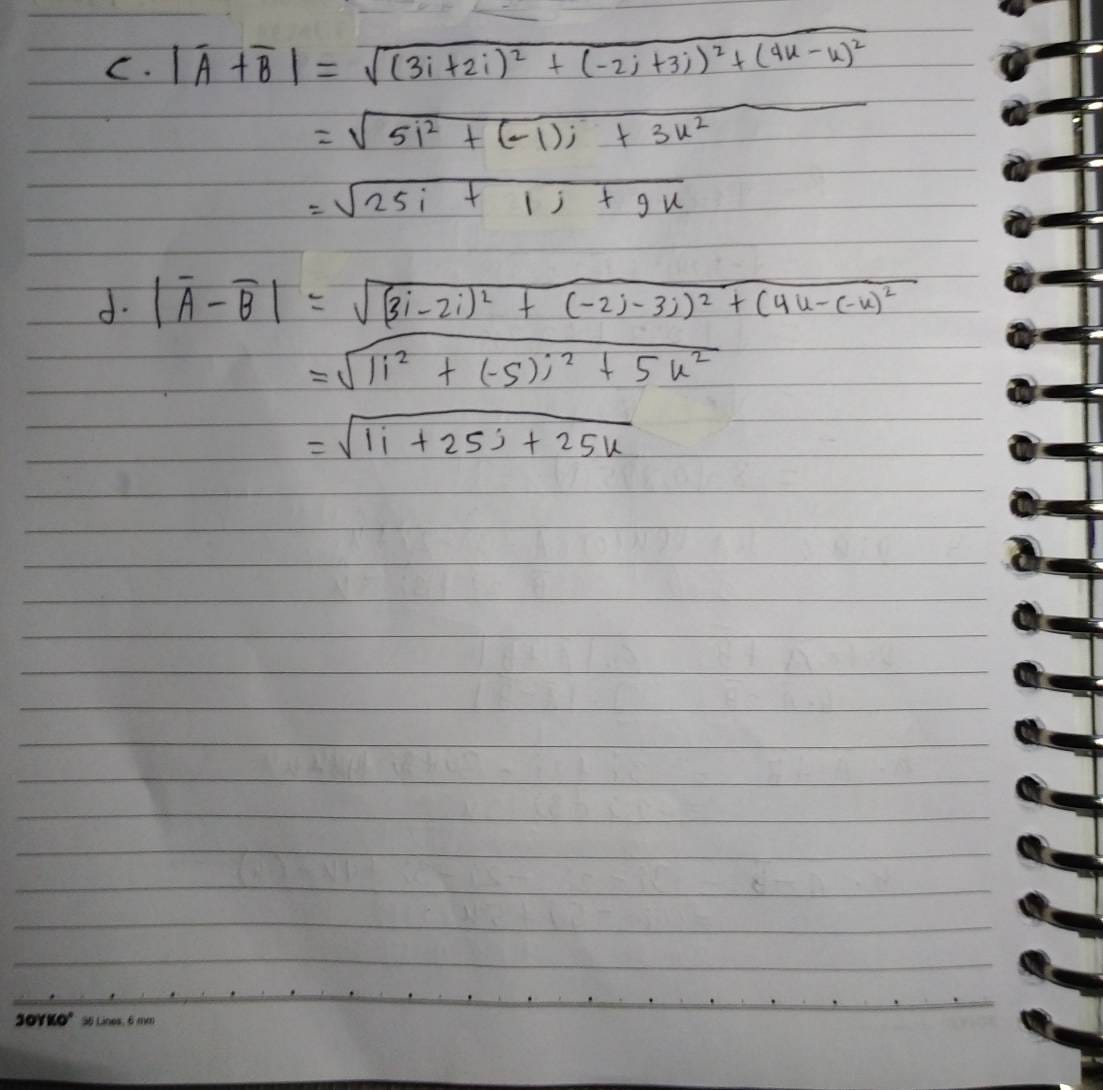 c. |A̅ + B̅| = √(3i+2i)² + (-2j+3j)² + (4k-k)²
= √5i² + (-1)j + 3k²
= √25i + 1j + 9k
d. |A̅ - B̅| = √(3i-2i)² + (-2j-3j)² + (4k-(-k)²
= √1i² + (-5)j² + 5k²
= √1i + 25j + 25k
JOYKO® 36 Lines, 6 mm